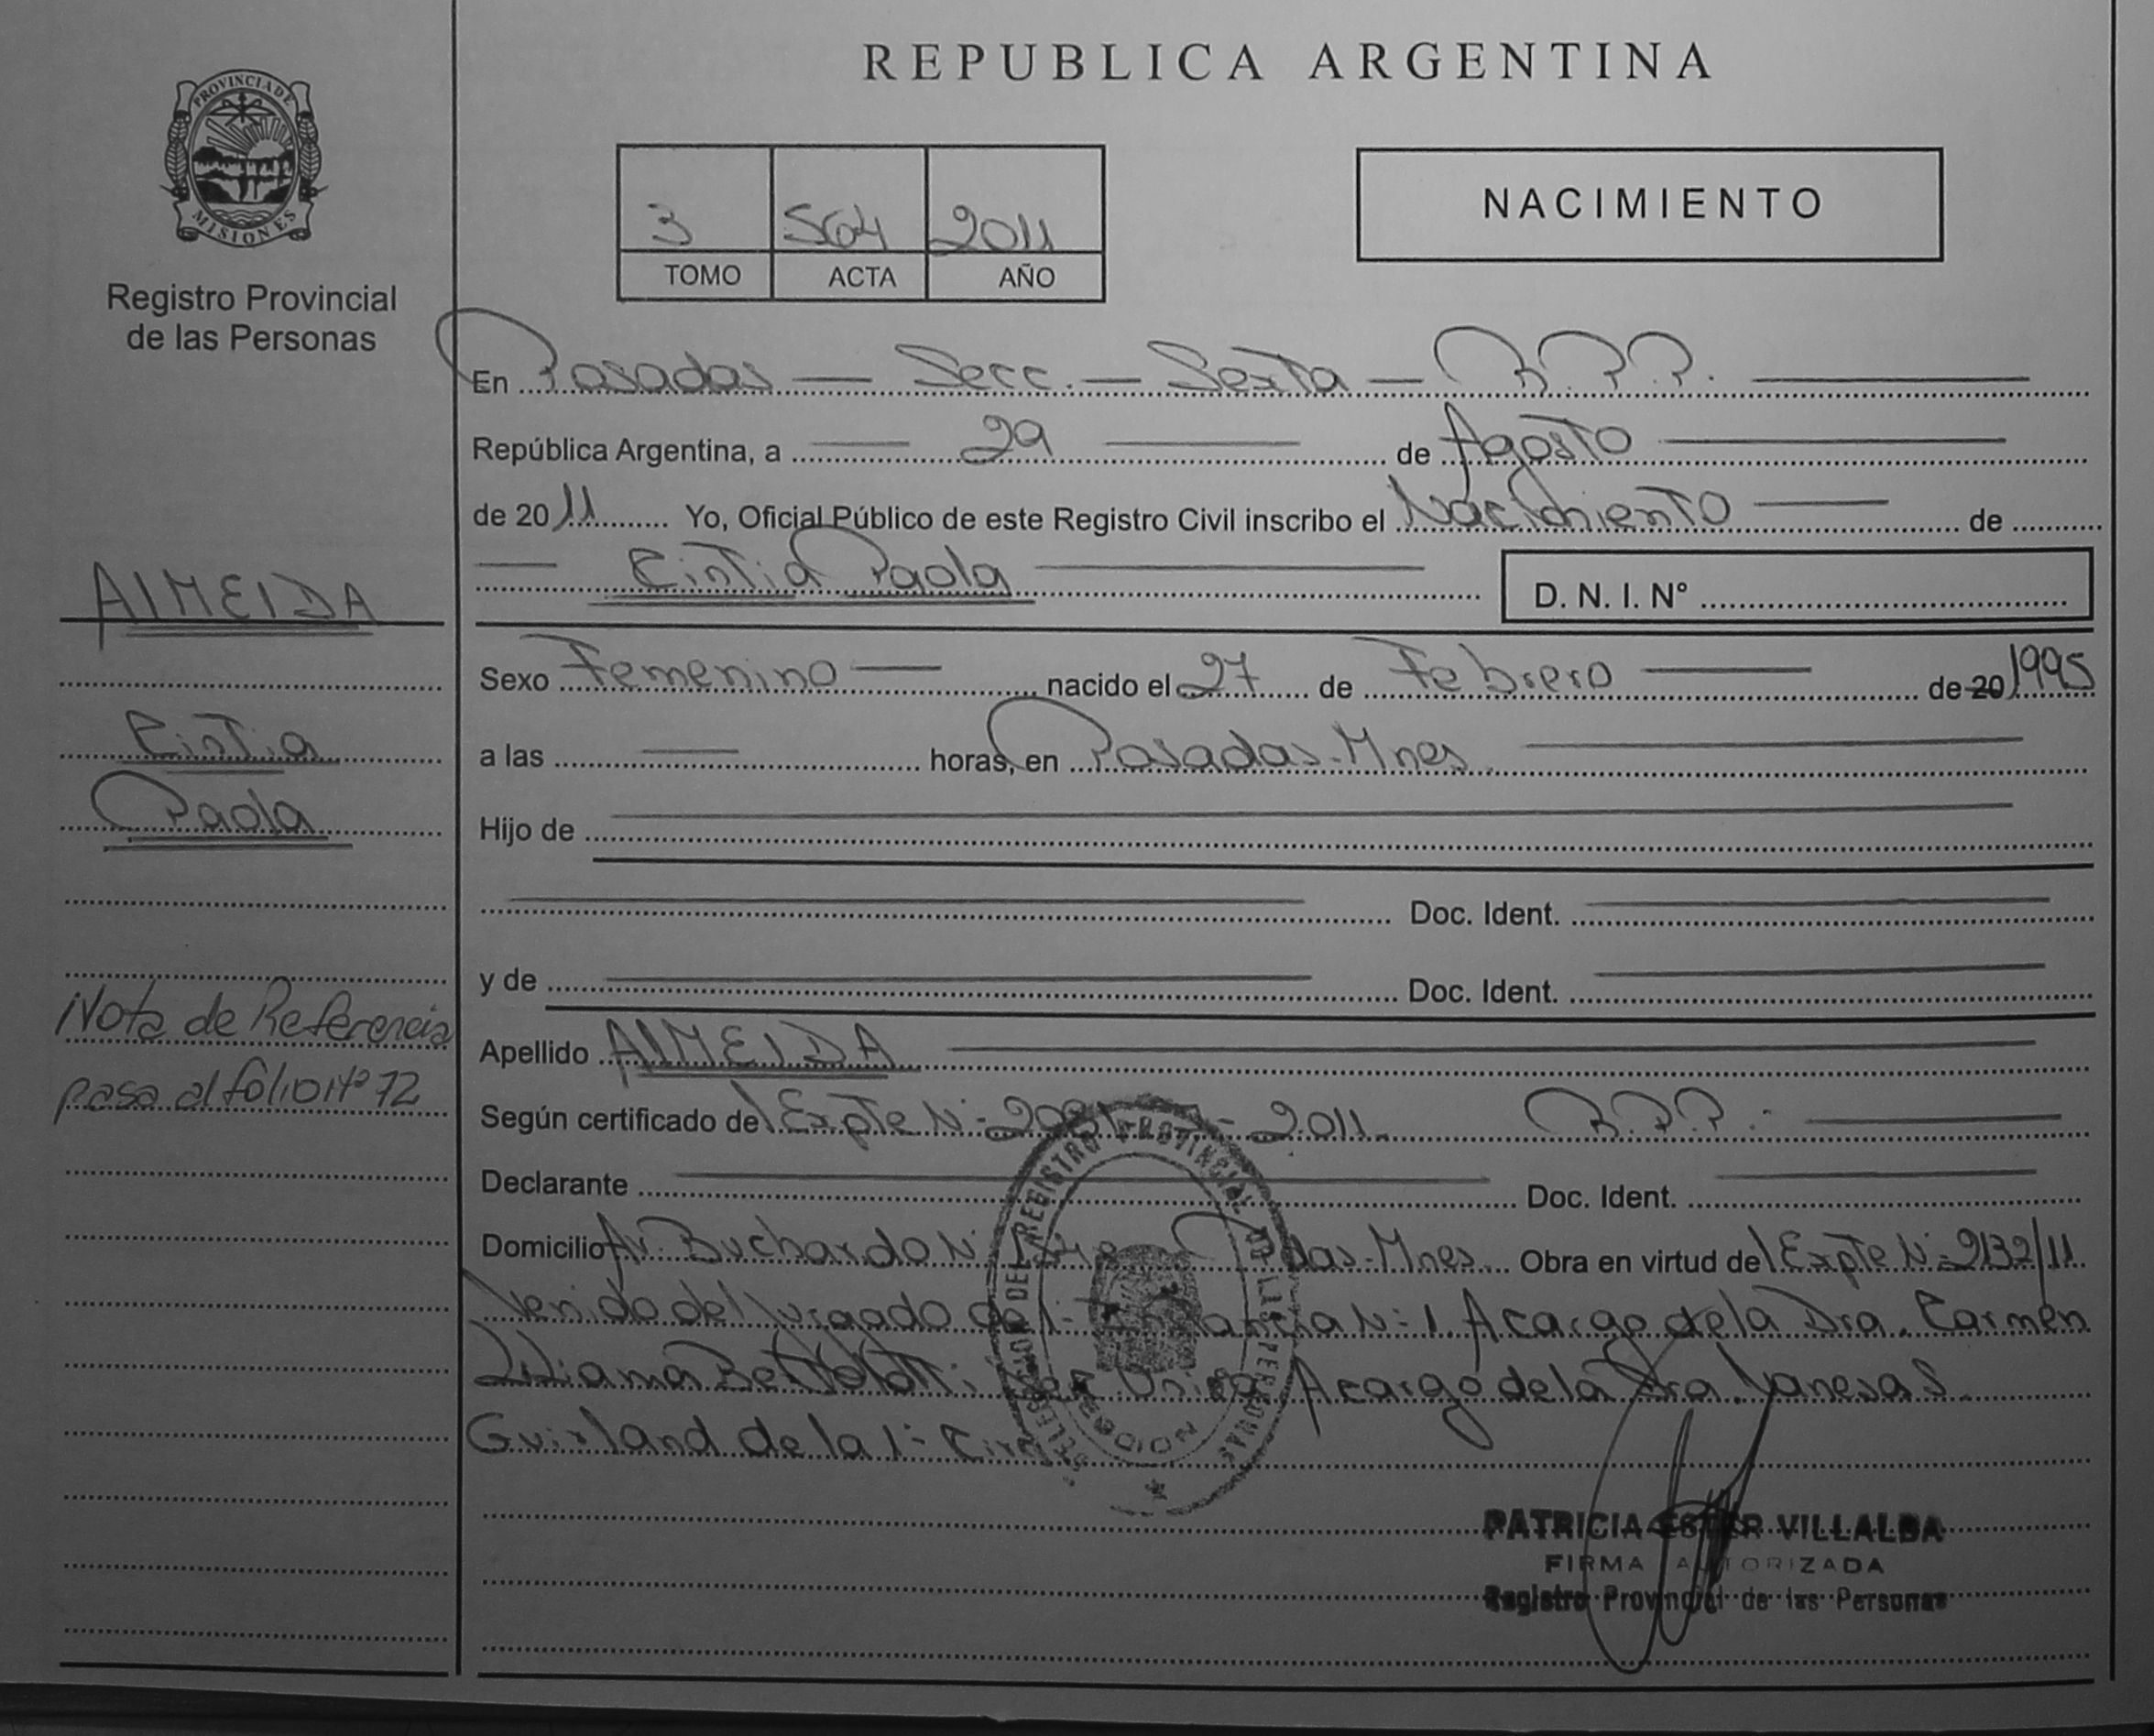 REPUBLICA ARGENTINA
PROVINCIA DE
MISIONES
Registro Provincial
de las Personas
3 564 2011
TOMO ACTA AÑO
NACIMIENTO
En Posadas — Secc. — Sexta — R.P.P.
República Argentina, a 29 de Agosto
de 2011 Yo, Oficial Público de este Registro Civil inscribo el Nacimiento de
Cintia Paola
D. N. I. Nº
ALMEIDA
Sexo Femenino nacido el 27 de Febrero de 20 1995
Cintia
a las — horas, en Posadas - Mnes
Paola
Hijo de
Doc. Ident.
y de Doc. Ident.
Nota de Referencia
Apellido ALMEIDA
pasa al folio Nº 72
Según certificado de Expte Nº 2011 R.P.P.
Declarante Doc. Ident.
Domicilio Av. Buchardo Nº das - Mnes Obra en virtud de Expte Nº 2132/11
Venido del Juzgado de 1º Instancia Nº 1. A cargo de la Dra. Carmen
Liliana A cargo de la Dra. Vanesa S
Guirland de la 1º Circ
DEL REGISTRO PROVINCIAL DE LAS PERSONAS
PATRICIA ESTER VILLALBA
FIRMA AUTORIZADA
Registro Provincial de las Personas